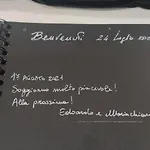 Benvenuti 24 Luglio
17 Agosto 2021
Soggiorno molto piacevole!
Alla prossima!
Edoardo e